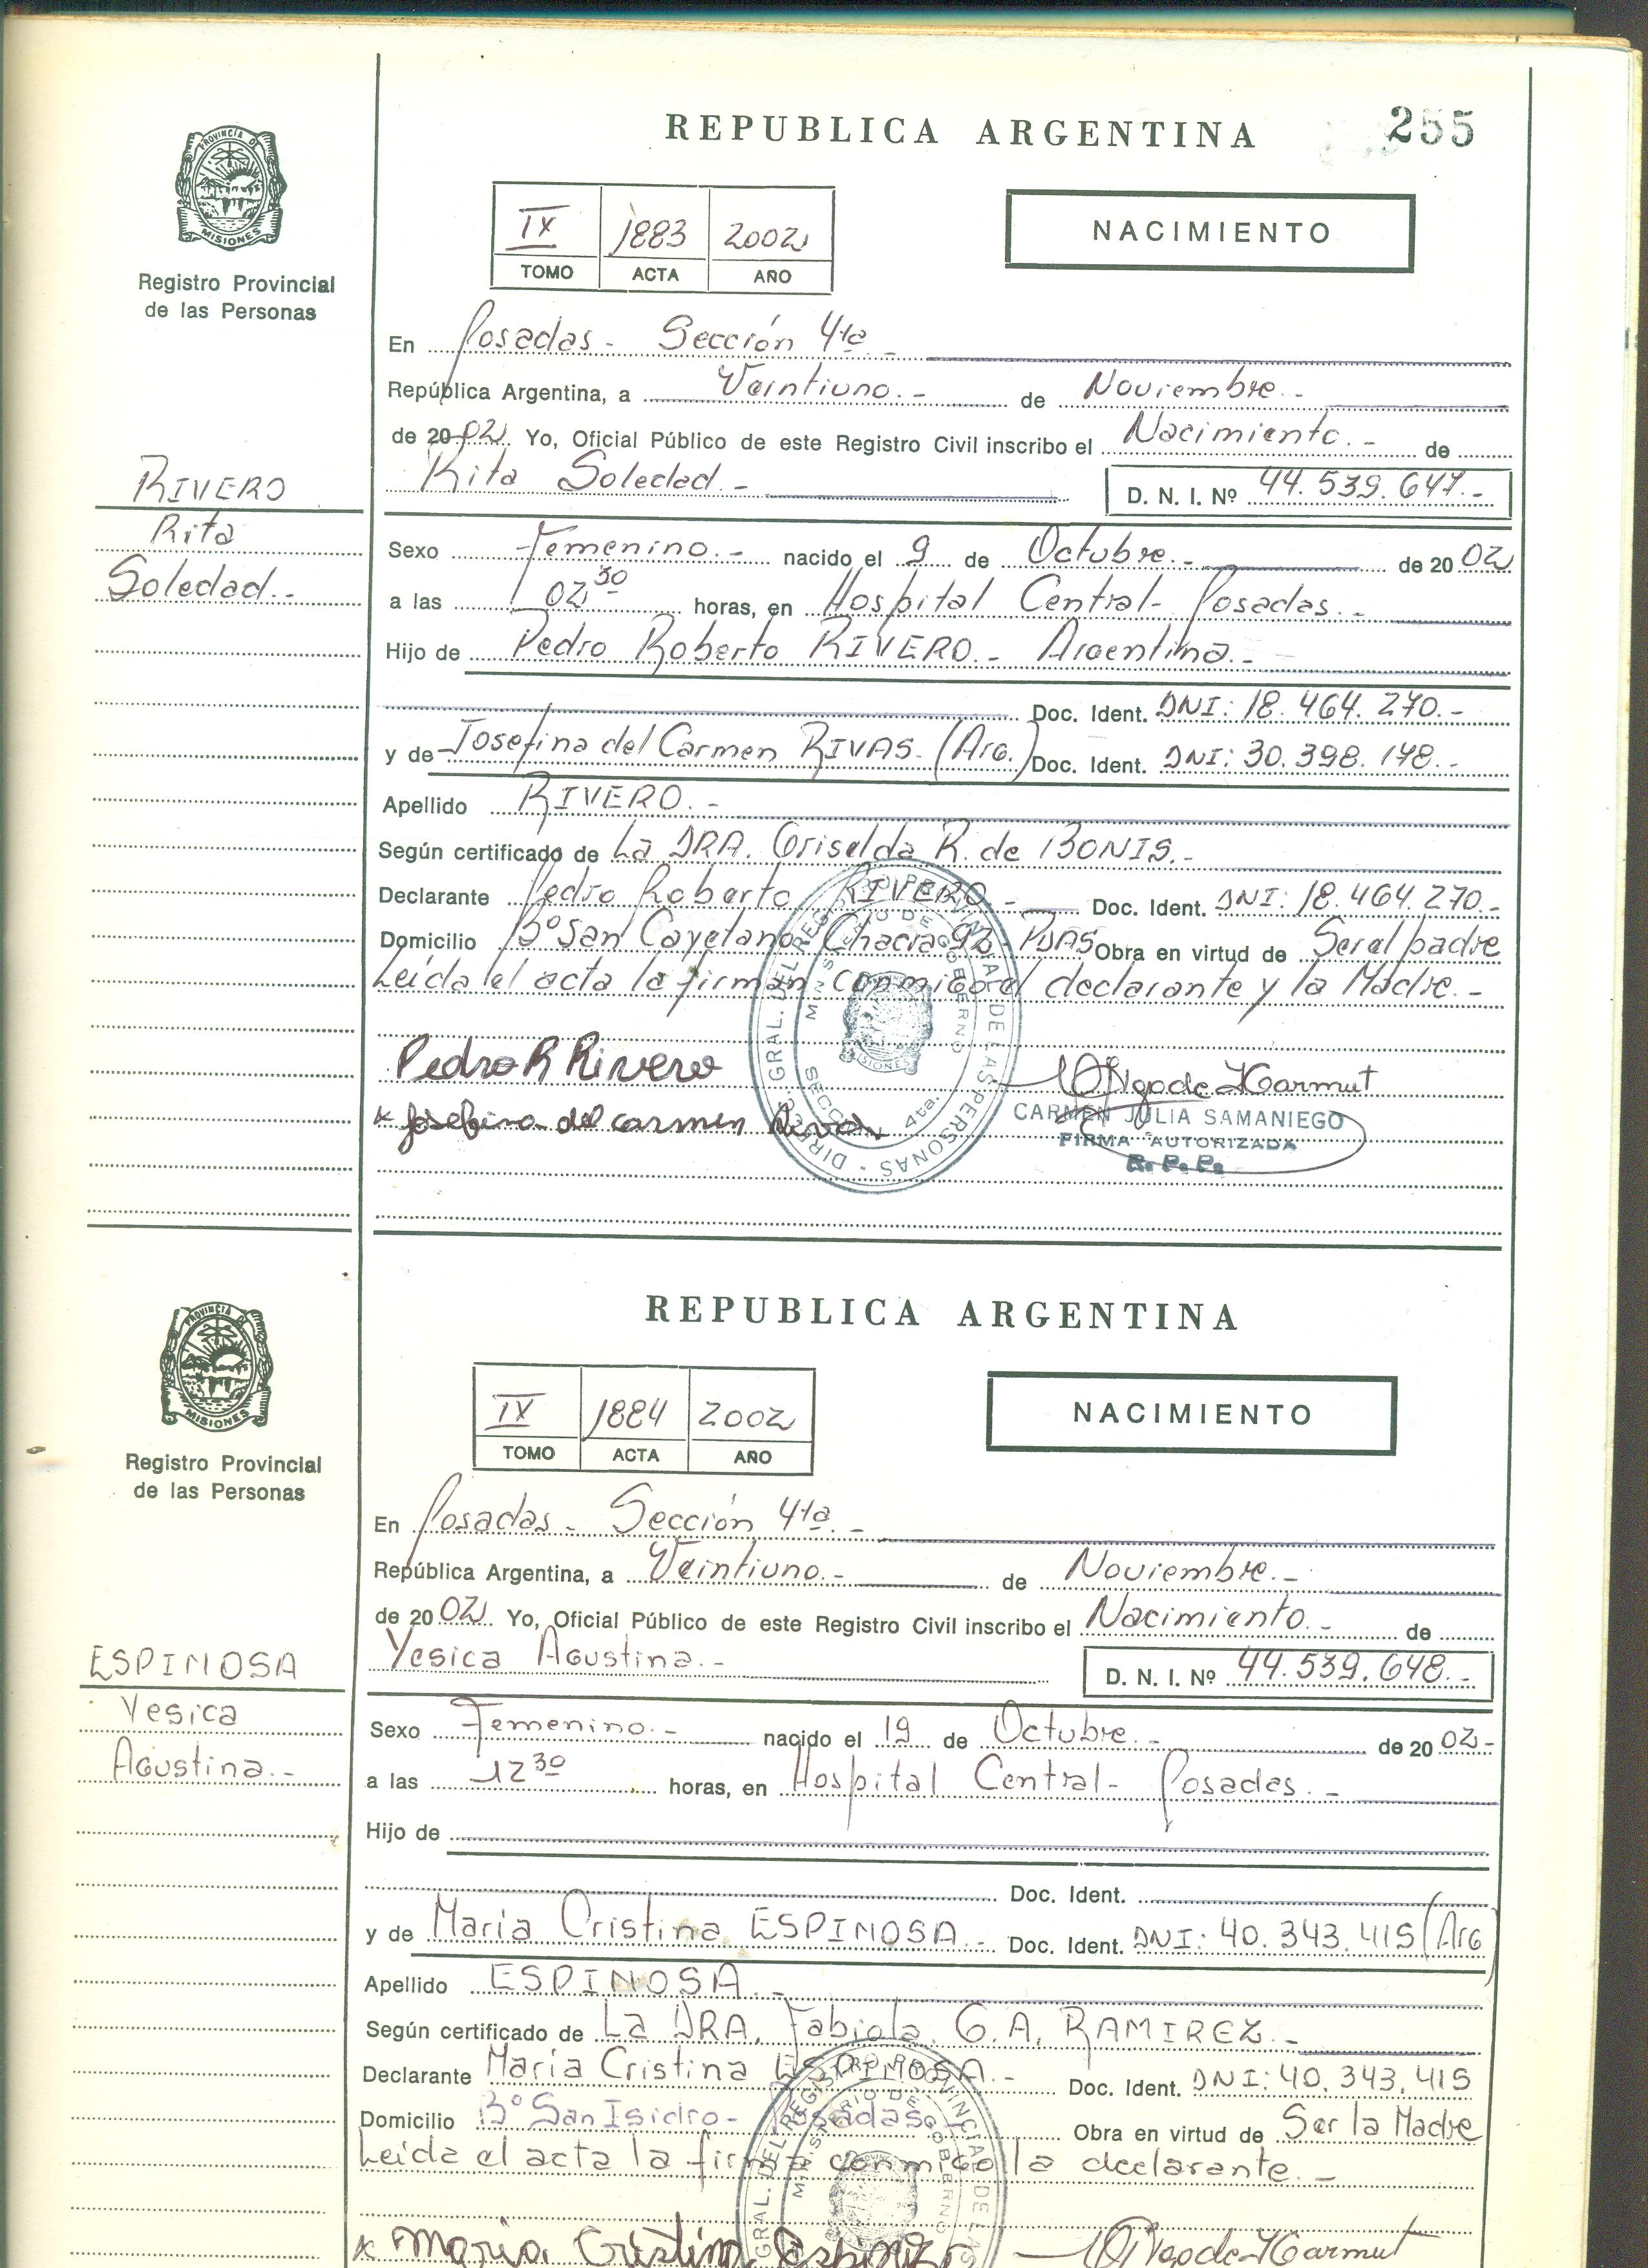 255
REPUBLICA ARGENTINA
PROVINCIA DE
MISIONES
Registro Provincial
de las Personas
IX 1883 2002
TOMO ACTA AÑO
NACIMIENTO
En Posadas - Sección 4ta -
República Argentina, a Veintiuno.- de Noviembre.-
de 2002 Yo, Oficial Público de este Registro Civil inscribo el Nacimiento.- de
Rita Soledad.- D. N. I. Nº 44.539.647.-
RIVERO
Rita
Soledad.-
Sexo Femenino.- nacido el 9 de Octubre.- de 2002
a las 02 30 horas, en Hospital Central- Posadas.-
Hijo de Pedro Roberto RIVERO.- Argentina.-
Doc. Ident. DNI: 18.464.270.-
y de Josefina del Carmen RIVAS.- (Arg.) Doc. Ident. DNI: 30.398.178.-
Apellido RIVERO.-
Según certificado de La DRA. Griselda R. de BONIS.-
Declarante Pedro Roberto RIVERO.- Doc. Ident. DNI: 18.464.270.-
Domicilio Bº San Cayetano Chacra 92- PDAS Obra en virtud de Ser el padre
Leída el acta la firman conmigo el declarante y la Madre.-
Pedro R Rivero
x Josefina del carmen Rivas
DIREC. GRAL. DEL REGISTRO PROVINCIAL DE LAS PERSONAS -
MINISTERIO DE GOBIERNO
MISIONES
SECCION 4ta.
CARMEN JULIA SAMANIEGO
FIRMA AUTORIZADA
R. P. P.
REPUBLICA ARGENTINA
PROVINCIA DE
MISIONES
Registro Provincial
de las Personas
IX 1884 2002
TOMO ACTA AÑO
NACIMIENTO
En Posadas - Sección 4ta.-
República Argentina, a Veintiuno.- de Noviembre.-
de 2002 Yo, Oficial Público de este Registro Civil inscribo el Nacimiento.- de
Yesica Agustina.- D. N. I. Nº 44.539.648.-
ESPINOSA
Yesica
Agustina.-
Sexo Femenino.- nacido el 19 de Octubre.- de 2002-
a las 12 30 horas, en Hospital Central- Posadas.-
Hijo de
Doc. Ident.
y de Maria Cristina ESPINOSA.- Doc. Ident. DNI: 40.343.415 (Arg)
Apellido ESPINOSA.-
Según certificado de La DRA. Fabiola. G.A. RAMIREZ.-
Declarante Maria Cristina ESPINOSA.- Doc. Ident. DNI: 40.343.415
Domicilio Bº San Isidro- Posadas.- Obra en virtud de Ser la Madre
Leída el acta la firma conmigo la declarante.-
GRAL. DEL REGISTRO PROVINCIAL DE LAS
MINISTERIO DE GOBIERNO
x Maria Cristina Espinoza